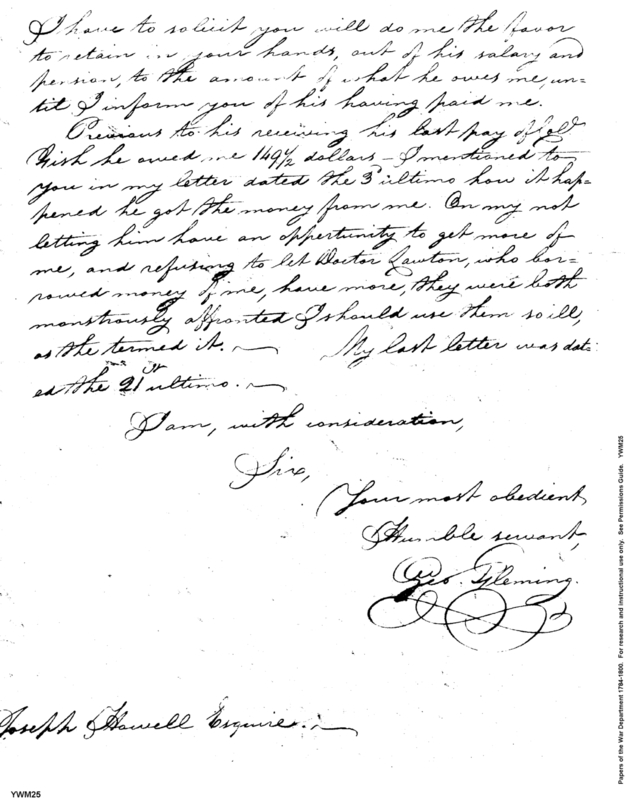 I have to solicit you will do me the favor
to retain in your hands, out of his salary and
pension, to the amount of what he owes me, un=
til I inform you of his having paid me.
Previous to his receiving his last pay of Coll
he owed me 149½ dollars – I mentioned to
you in my letter dated the 3d ultimo how it hap=
pened he got the money from me. On my not
letting him have an opportunity to get more of
me, and refusing to let Doctor Lawton, who bor=
rowed money of me, have more, they were both
monstrously affronted I should use them so ill,
as the termed it. — My last letter was dat=
ed the 21st ultimo. —
I am, with consideration,
Sir,
Your most obedient
Humble servant,
Geo. Fleming.
Joseph Howell Esquire. —
YWM25
Papers of the War Department 1784-1800. For research and instructional use only. See Permissions Guide. YWM25